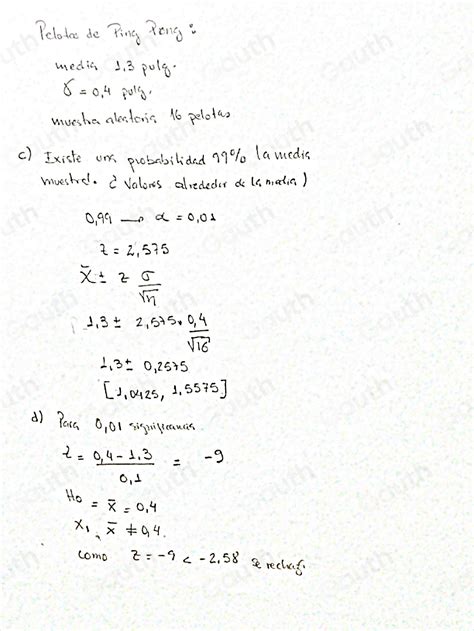 Pelotas de Ping Pong :
media 1,3 pulg.
σ = 0,4 pulg.
muestra aleatoria 16 pelotas
c) Existe una probabilidad 99% la media
muestral. ¿ Valores alrededor de la media )
0,99 → α = 0,01
z = 2,575
x̄ ± z σ/√n
1,3 ± 2,575 * 0,4/√16
1,3 ± 0,2575
[1,0425, 1,5575]
d) Para 0,01 significancia
z = (0,4 - 1,3)/0,1 = -9
H0 = x̄ = 0,4
x1 x̄ ≠ 0,4.
como z = -9 < -2,58 se rechaz.